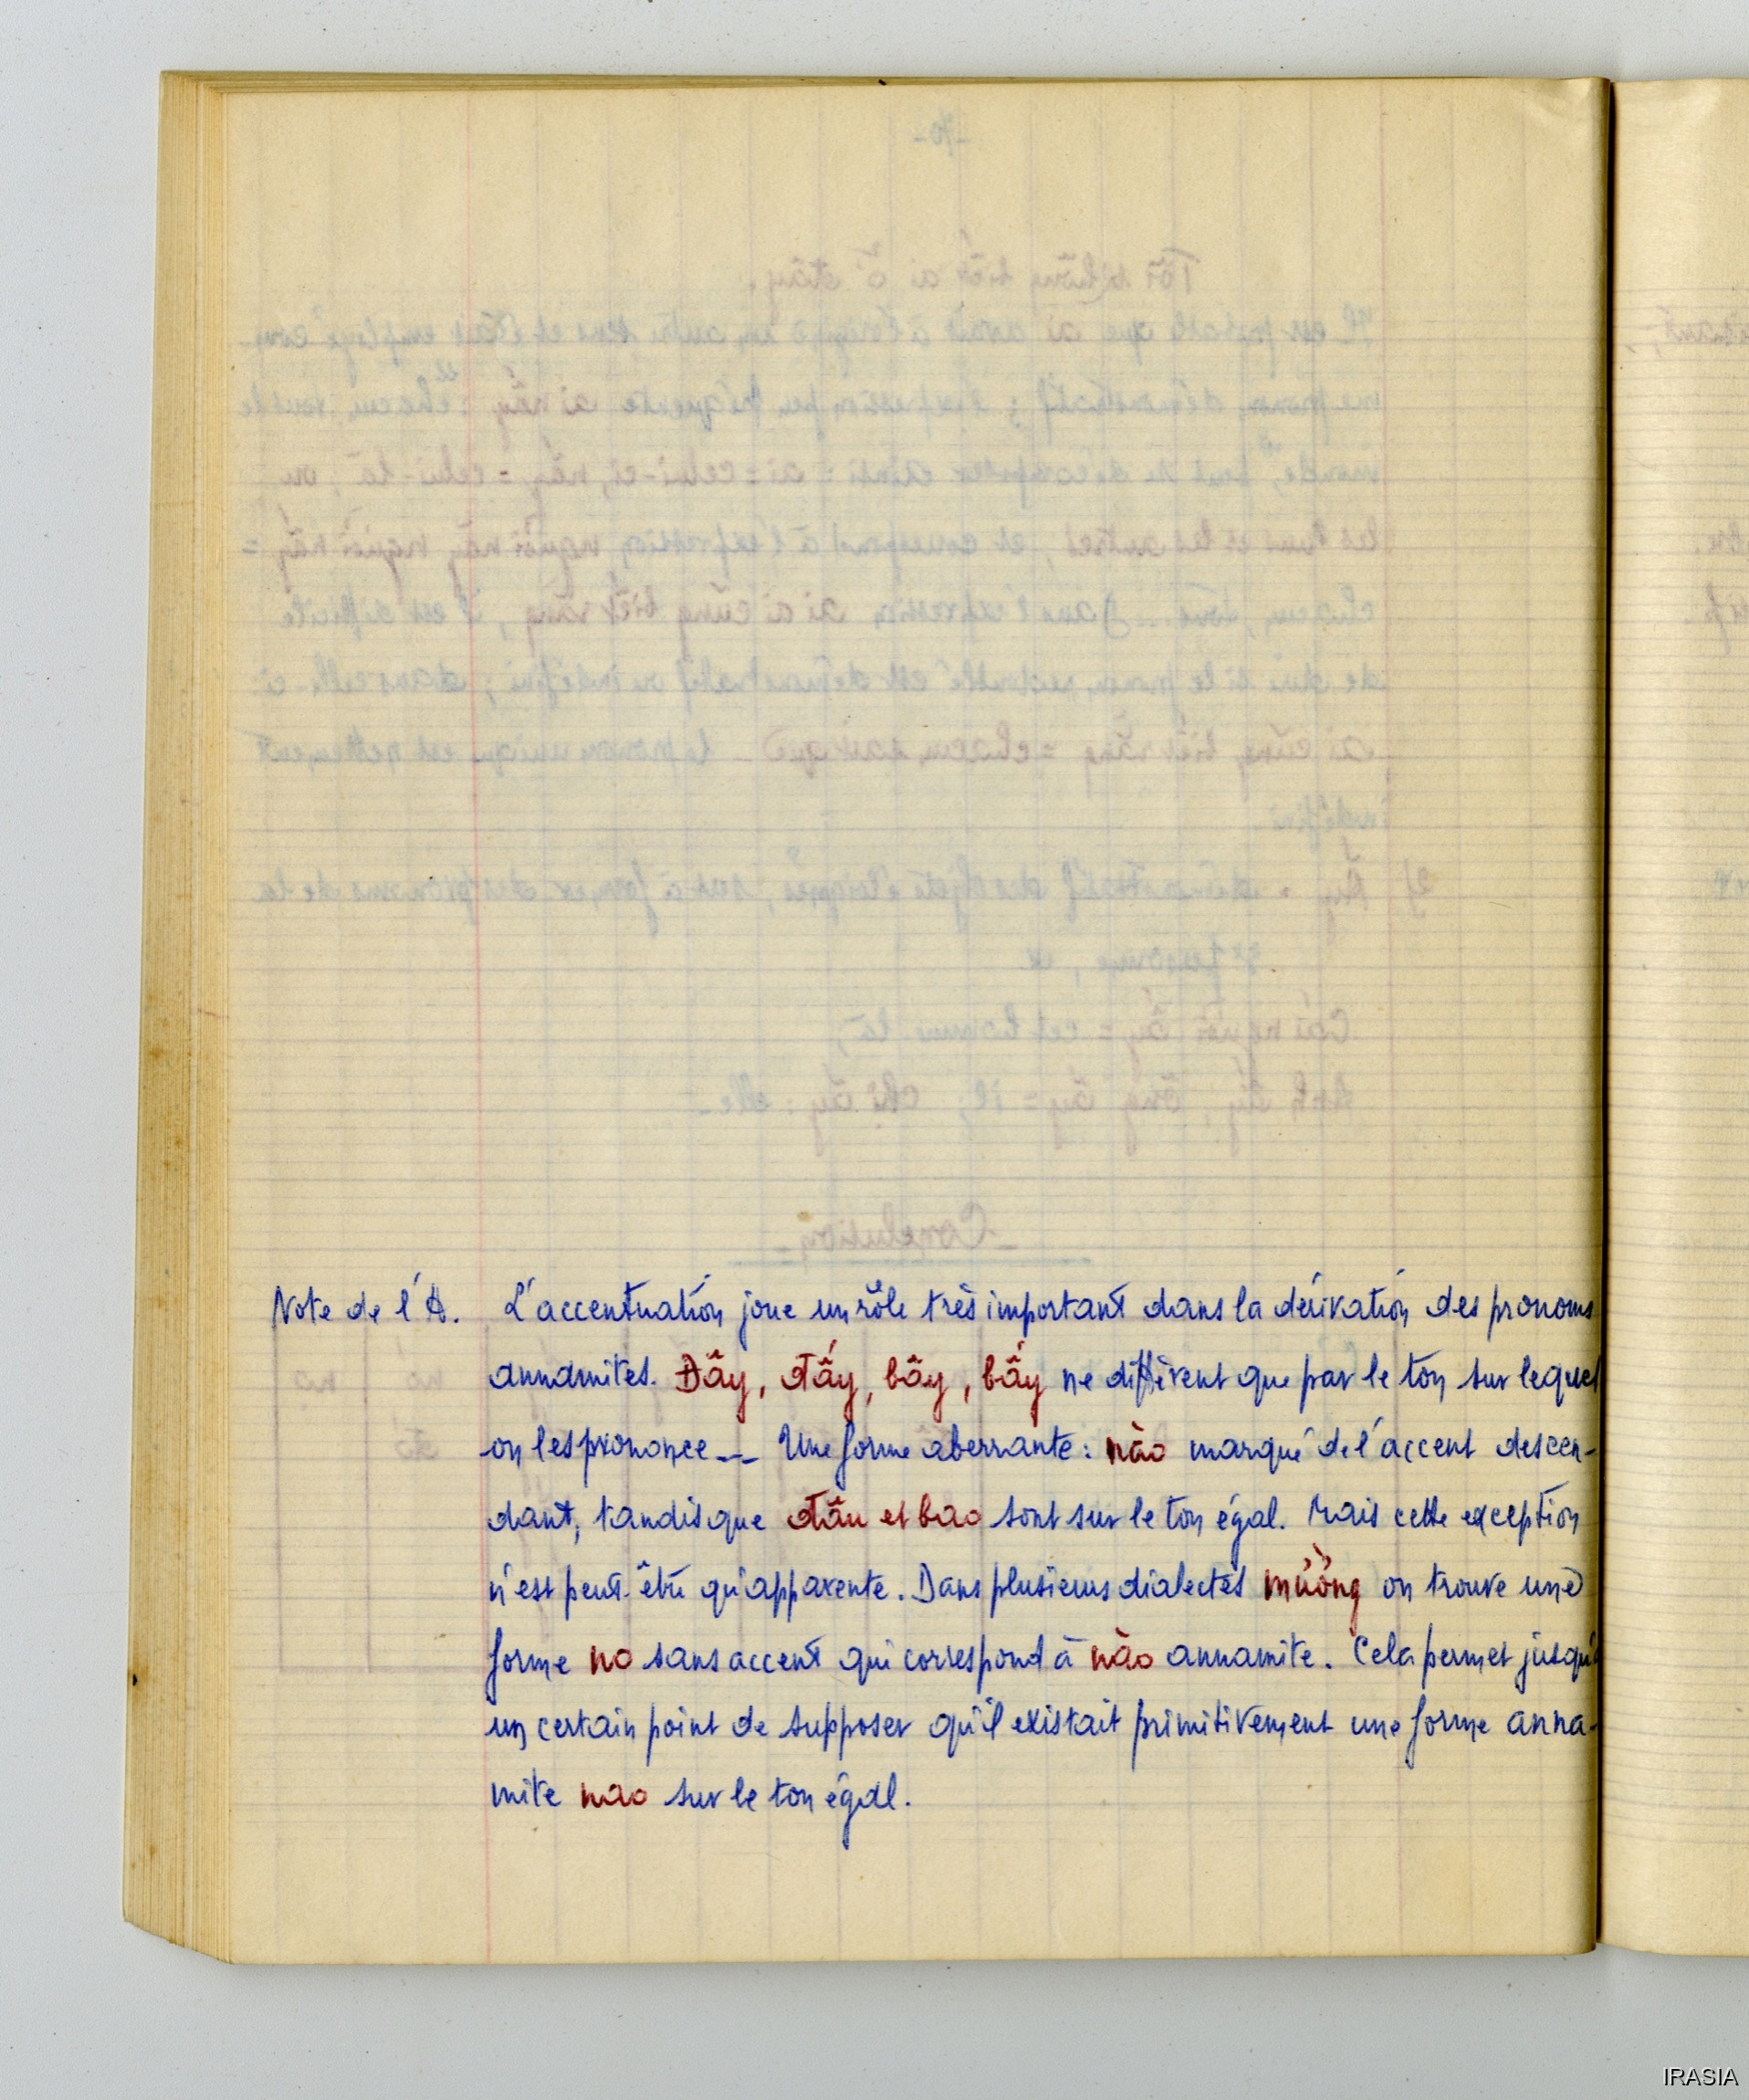 Note de l'A. L'accentuation joue un rôle très important dans la dérivation des pronoms
annamites. Đây, đấy, bây, bấy ne diffèrent que par le ton sur lequel
on les prononce -- Une forme aberrante : nào marqué de l'accent descen-
dant, tandis que đâu et bao sont sur le ton égal. Mais cette exception
n'est peut-être qu'apparente. Dans plusieurs dialectes mường on trouve une
forme no sans accent qui correspond à nào annamite. Cela permet jusqu'à
un certain point de supposer qu'il existait primitivement une forme anna-
mite nao sur le ton égal.
IRASIA